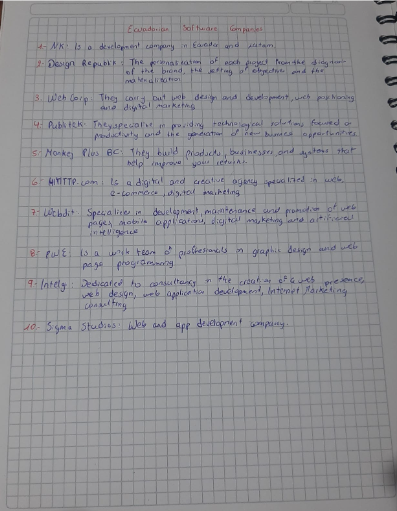 Ecuadorian Software Companies
1- NK: Is a development company in Ecuador and
2- Design Republik: The personalization of each project from the diagram
of the brand, the setting of objectives and the
materialization
3. Web Corp: They carry out web design and development, web positioning
and digital marketing
4- They specialize in providing technological solutions focused on
productivity and the generation of new business opportunities
5- Monkey Plus BC: They build products, businesses and systems that
help improve your returns.
6- Is a digital and creative agency specialized in web,
e-commerce, digital marketing
7- Specializes in development, maintenance and promotion of web
pages, mobile applications, digital marketing and artificial
intelligence
8- Is a team of professionals in graphic design and web
page programming.
9- Intelq: Dedicated to consultancy in the creation of web presence,
web design, web application development, Internet Marketing
consulting
10- Sigma Studios: Web and app development company.